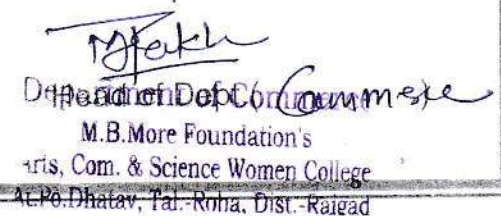 Head of Dept. (Commerce
Department of Commerce
M.B.More Foundation's
Arts, Com. & Science Women College
At.Po.Dhatav, Tal.-Roha, Dist.-Raigad